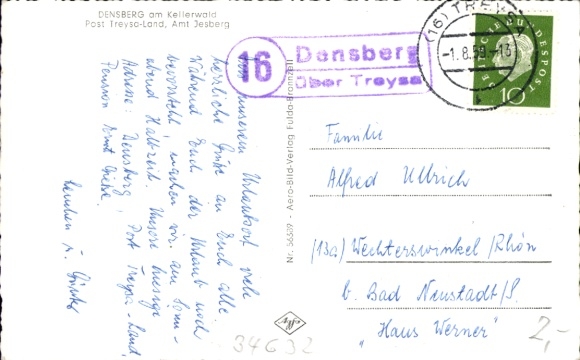 DENSBERG am Kellerwald
Post Treysa-Land, Amt Jesberg
16
Densberg
über Treysa
(16) TREYSA
-1.8.59-13
DEUTSCHE BUNDESPOST
10
unserem Urlaubsort viele
herzliche Grüße an Euch alle.
Während Euch der Urlaub noch
bevorsteht, machen wir am Sonn-
abend Halbzeit. Unsere hiesige
Adresse: Densberg, Post Treysa-Land,
Pension
Nr. 36559 - Aero-Bild-Verlag Fulda-Bronnzell
Agfa
Familie
Alfred Ullrich
(13a) Wechterswinkel / Rhön
b. Bad Neustadt/S.
"Haus Werner"
34632
2,-